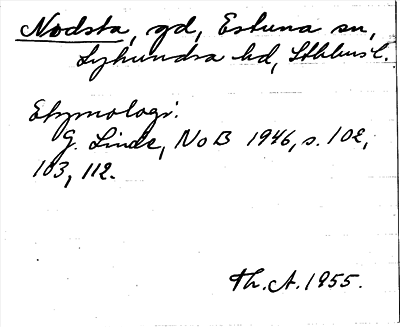 Nodsta, gd, Estuna sn,
Lyhundra hd, Sthlms l.
Etymologi:
G. Linde, NoB 1946, s. 102,
103, 112.
Th. A. 1955.